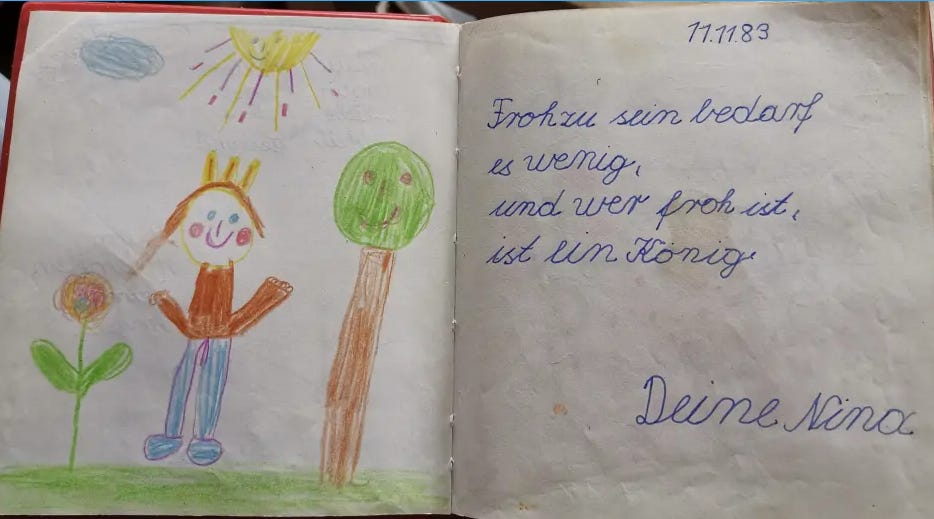 11.11.83
Froh zu sein bedarf
es wenig,
und wer froh ist,
ist ein König.
Deine Nina